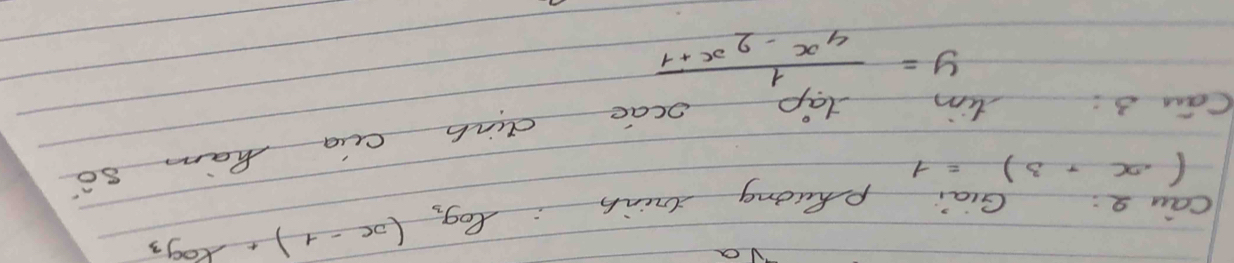 √a
Câu 2: Giải phương trình : log₃ (x - 1) + log₃
(x + 3) = 1
Câu 3: tìm tập xác định của hàm số
y = 1 / (4^x - 2^(x+1))